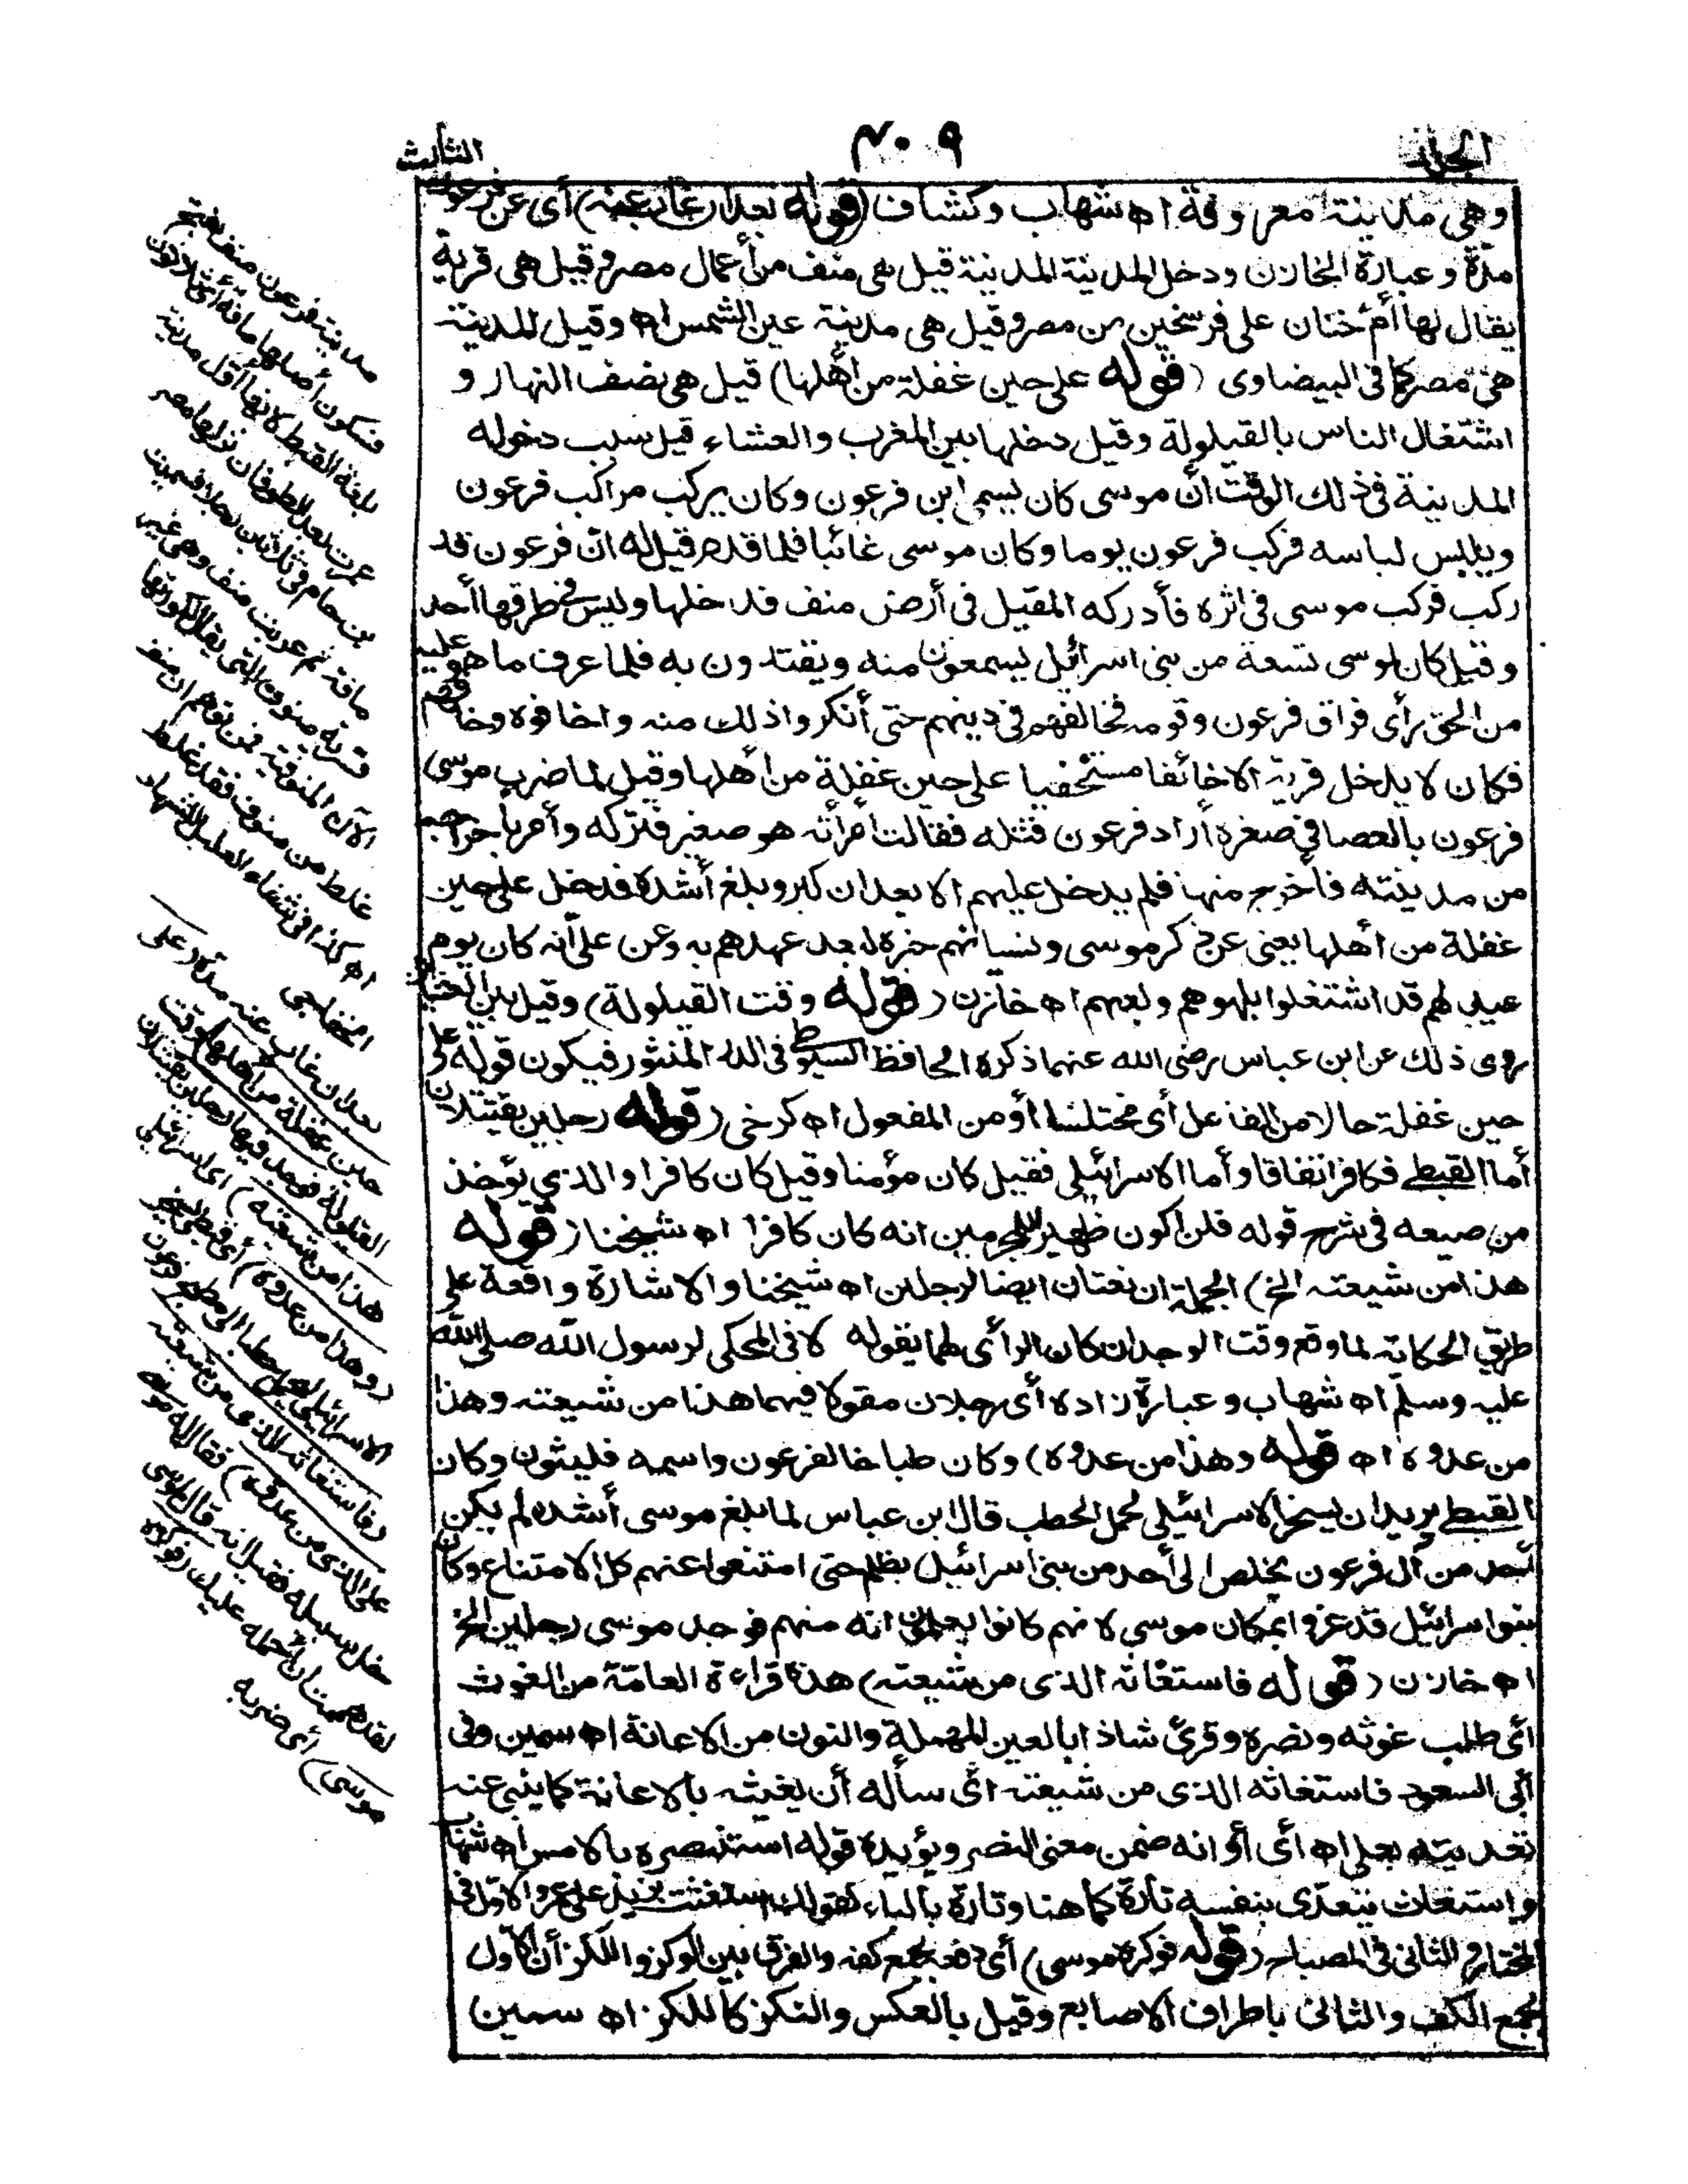 الجزء
٣٠٩
الثالث
وهي مدينة معروفة اه شهاب وكشاف (قوله بعد ان غاب عنه) أي عن فرعون
مدّة وعبارة الخازن ودخل المدينة المدينة قيل هي منف من أعمال مصر وقيل هي قرية
يقال لها أم خنان على فرسخين من مصر وقيل هي مدينة عين الشمس اه وقيل المدينة
هي مصر كما في البيضاوي (قوله على حين غفلة من أهلها) قيل هي نصف النهار و
اشتغال الناس بالقيلولة وقيل دخلها بين المغرب والعشاء قيل سبب دخوله
المدينة في ذلك الوقت أن موسى كان يسمى ابن فرعون وكان يركب مراكب فرعون
ويلبس لباسه فركب فرعون يوما وكان موسى غائبا فلما قدم قيل له ان فرعون قد
ركب فركب موسى في اثره فأدركه المقيل في أرض منف فدخلها وليس في طرقها أحد
وقيل كان لموسى شيعة من بني اسرائيل يسمعون منه ويقتدون به فلما عرف ما هو عليه
من الحق رأى فراق فرعون وقومه فخالفهم في دينهم حتى أنكروا ذلك منه واخافوه وخافهم
فكان لا يدخل قرية الا خائفا مستخفيا على حين غفلة من أهلها وقيل لما ضرب موسى
فرعون بالعصا في صغره أراد فرعون قتله فقالت امرأته هو صغير فتركه وأمر باخراجه
من مدينته فأخرج منها فلم يدخل عليهم الا بعد ان كبر وبلغ أشده فدخل على حين
غفلة من أهلها يعني عن ذكر موسى ونسيانهم خبره لبعد عهدهم به وعن علي أنه كان يوم
عيد لهم قد اشتغلوا بلهوهم ولعبهم اه خازن (قوله وقت القيلولة) وقيل بين العشاءين
روى ذلك عن ابن عباس رضي الله عنهما ذكره الحافظ السيوطي في الدر المنثور فيكون قوله على
حين غفلة حالا من الفاعل أي مختلسا أو من المفعول اه كرخي (قوله رجلين يقتتلان
أما القبطي فكافر اتفاقا وأما الاسرائيلي فقيل كان مؤمنا وقيل كان كافرا والذي يؤخذ
من صيعه في شرح قوله فلن اكون ظهيرا للمجرمين انه كان كافرا اه شيخنا (قوله
هذا من شيعته الخ) الجملتان نعتان ايضا لرجلين اه شيخنا والاشارة واقعة على
طريق الحكاية لما وقع وقت الوجدان كان الرأي لهما يقوله لا في المحكي لرسول الله صلى الله
عليه وسلم اه شهاب وعبارة زاده أي رجلان مقولا فيهما هذا من شيعته وهذا
من عدوه اه قوله وهذا من عدوه) وكان طباخا لفرعون واسمه فليثون وكان
القبطي يريد ان يسخر الاسرائيلي لحمل الحطب قال ابن عباس لما بلغ موسى أشده لم يكن
أحد من آل فرعون يخلص الى أحد من بني اسرائيل بظلم حتى امتنعوا عنهم كل الامتناع وكان
بنوا سرائيل قد عزوا بمكان موسى لانهم كانوا يعلمون انه منهم فوجد موسى رجلين الخ
اه خازن (قوله فاستغاثه الذي من شيعته) هذه قراءة العامّة من الغوث
أي طلب غوثه ونصره وقرئ شاذا بالعين المهملة والنون من الاعانة اه سمين وفي
أبي السعود فاستغاثه الذي من شيعته أي سأله أن يغيثه بالاعانة كما ينبئ عنه
تعديته بعلى اه أي أو انه ضمن معنى النصر ويؤيده قوله استنصره بالامس اه شهاب
واستغاث يتعدّى بنفسه تارة كما هنا وتارة بالباء كقولك استغثت بزيد على عمرو الاول في
المختار والثاني في المصباح (قوله فوكزه موسى) أي دفعه بجمع كفه والفرق بين الوكز واللكز أن الاول
بجمع الكف والثاني باطراف الاصابع وقيل بالعكس والنكز كاللكز اه سمين
مدينة فرعون منف بفتح
فسكون أصلها مافة أي ثلاثون
بلغة القبط لانها أول مدينة
عمرت بعد الطوفان نزلها مصر
بن حام في ثلاثين رجلا فسميت
مافة ثم عربت منف وهي غير
قرية منوف التي يقال لكورتها
الآن المنوفية فمن توهم ان منف
غلط من منوف فقد غلط
اه كذا في شفاء الغليل للشهاب
الخفاجي
بعد ان غاب عنه مدة (على
حين غفلة من أهلها) وقت
القيلولة فوجد فيها رجلين يقتتلان
هذا من شيعته) أي اسرائيلي
(وهذا من عدوه) أي قبطي يسخر
الاسرائيلي ليحمل حطبا الى مطبخ فرعون
(فاستغاثه الذي من شيعته
على الذي من عدوه) فقال له موسى
خل سبيله فقيل انه قال لموسى
لقد هممت ان أحمله عليك (فوكزه
موسى) أي ضربه